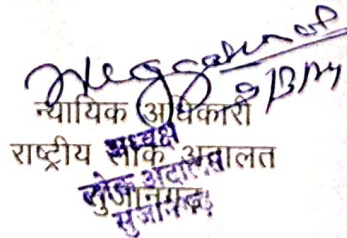 न्यायिक अधिकारी
राष्ट्रीय लोक अदालत
सुजानगढ़
अध्यक्ष
लोक अदालत
सुजानगढ़